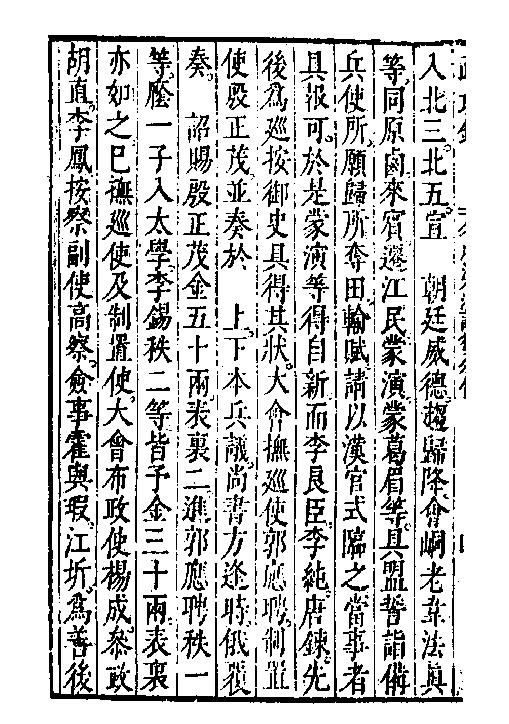 入北三。北五宣　朝廷威德。趨歸降。會峒老韋法眞
等。同原鹵來賓遷江民蒙演。蒙葛眉等。具盟誓。詣備
兵使所。願歸所奪田。輸賦。請以漢官式臨之。當事者
具報可。於是蒙演等得自新。而李良臣。李純。唐鍊。先
後爲巡按御史。具得其狀。大會撫巡使郭應聘。制置
使殷正茂。並奏於　上。下本兵議。尚書方逢時。俄覆
奏。　詔賜殷正茂金五十兩。表裏二。進郭應聘秩一
等。廕一子入太學。李錫秩二等。皆予金三十兩。表裏
亦如之。巳。撫巡使及制置使。大會布政使楊成。參政
胡直。李鳳。按察副使高察。僉事霍與瑕。江圻。爲善後